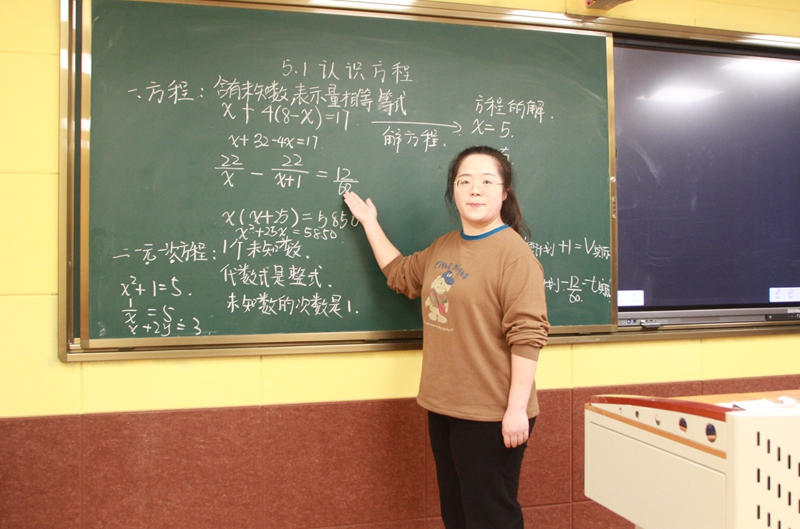 5.1 认识方程
一、方程：含有未知数 表示量相等 等式
x + 4(8-x)=17
解方程.
方程的解.
x=5.
x+32-4x=17
22/x - 22/(x+1) = 12/60
x(x+25)=5850
x²+25x=5850.
二、一元一次方程：1个未知数.
代数式是整式.
未知数的次数是1.
x²+1=5.
1/x=5
x+2y=3
+1=V实际
-12/60=t实际